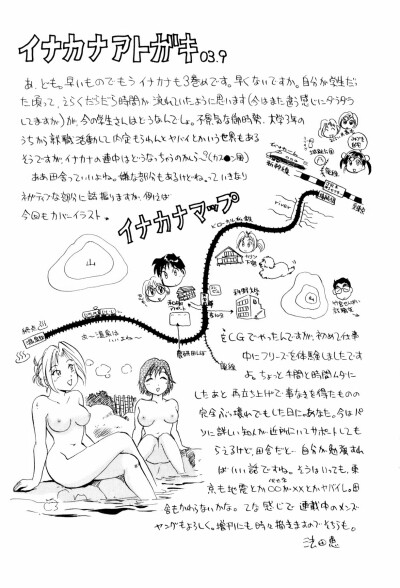 イナカナアトガキ 03.9
あ、ども。早いものでもうイナカナも3巻めです。早くないですか。自分が学生だっ
た頃って、そらくだらだら時間が流れていたように思います(今はまた違う感じにダラダラ
してますが)が、今の学生さんはどうなんでしょ。不景気な御時勢、大学3年の
うちから就職活動して内定もらわんとヤバイとかいう世界もある
そうですが、イナカナの連中はどうなっちゃうのかしら?
ああ田舎っていいよね。嫌な部分もあるけどね。っていきなり
ネガティブな部分に話振りますが、例えば
今回もカバーイラスト。
イナカナマップ
山
river
温泉
終点
ホー温泉は
いいよねー
をCGでやったんですが、初めて仕事
中にフリーズを体験しましたです
よ。ちょっと半間と時間ムダに
したあと再立ち上げで事なきを得たものの
完全ぶっ壊れでもした日にゃあなた。今はパソ
に詳しい知人が近所にいてサポートしても
らえるけど、田舎だと…自分が勉強すれ
ばいい話ですね。そうはいっても、東
京も地震とか○○が××とかヤバイし。田
舎もかわらないかな。てな感じで連載中のメンズ
ヤングもよろしく。増刊にも時々描きますのでそちらも。
法田恵